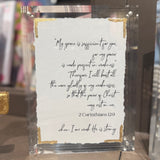 "My grace is sufficient for you,
for my power
is made perfect in weakness."
Therefore I will boast all
the more gladly of my
weaknesses, so
that the power of Christ
may rest on me.
2 Corinthians 12:9
when I am weak He is strong